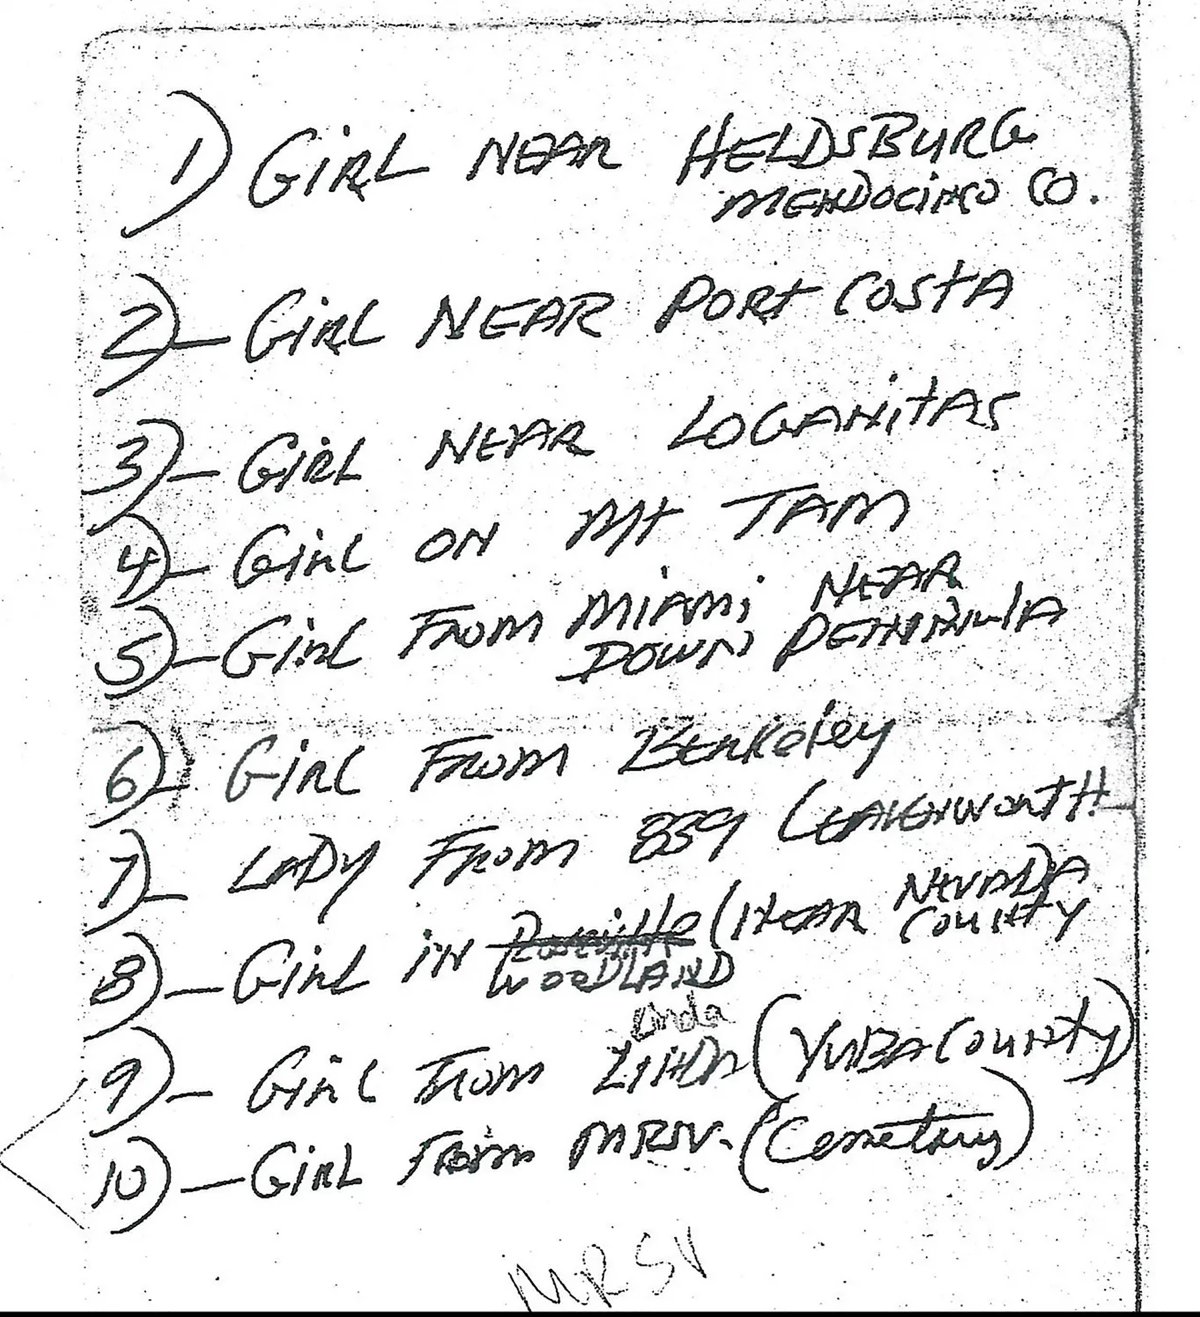 1) GiRL NEAR HELDSBURG
MENDOCINO CO.
2)- GiRL NEAR PORt COStA
3)- GiRL NEAR LOGANitAS
4)- GiRL ON Mt TAM
5)- GiRL FROM MiAMi NEAR
DOWN PENINNULA
6)- GiRL FROM BERKeley
7)- LADY FROM 839 LEAVENWORtH
8)- GiRL iN Roseville (NEAR NEVADA
WOODLAND COUNtY
Linda
9)- GiRL FROM LINDA (YUBA COUNty)
10)- GiRL FROM MRSV. (Cemetary)
MRSV